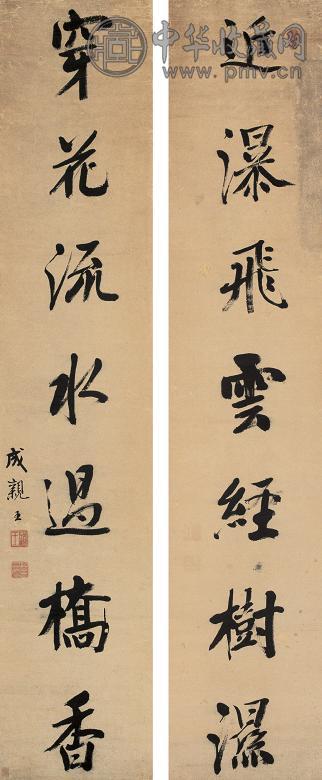 近瀑飛雲經樹濕
穿花流水過橋香
成親王
中华收藏网
www.pmv.cn